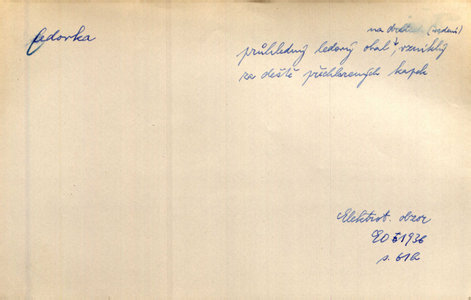 ledovka
na drátech (vedení)
průhledný ledový obal, vzniklý
za deště přechlazených kapek
Elektrot. obzor
EO 1936
s.